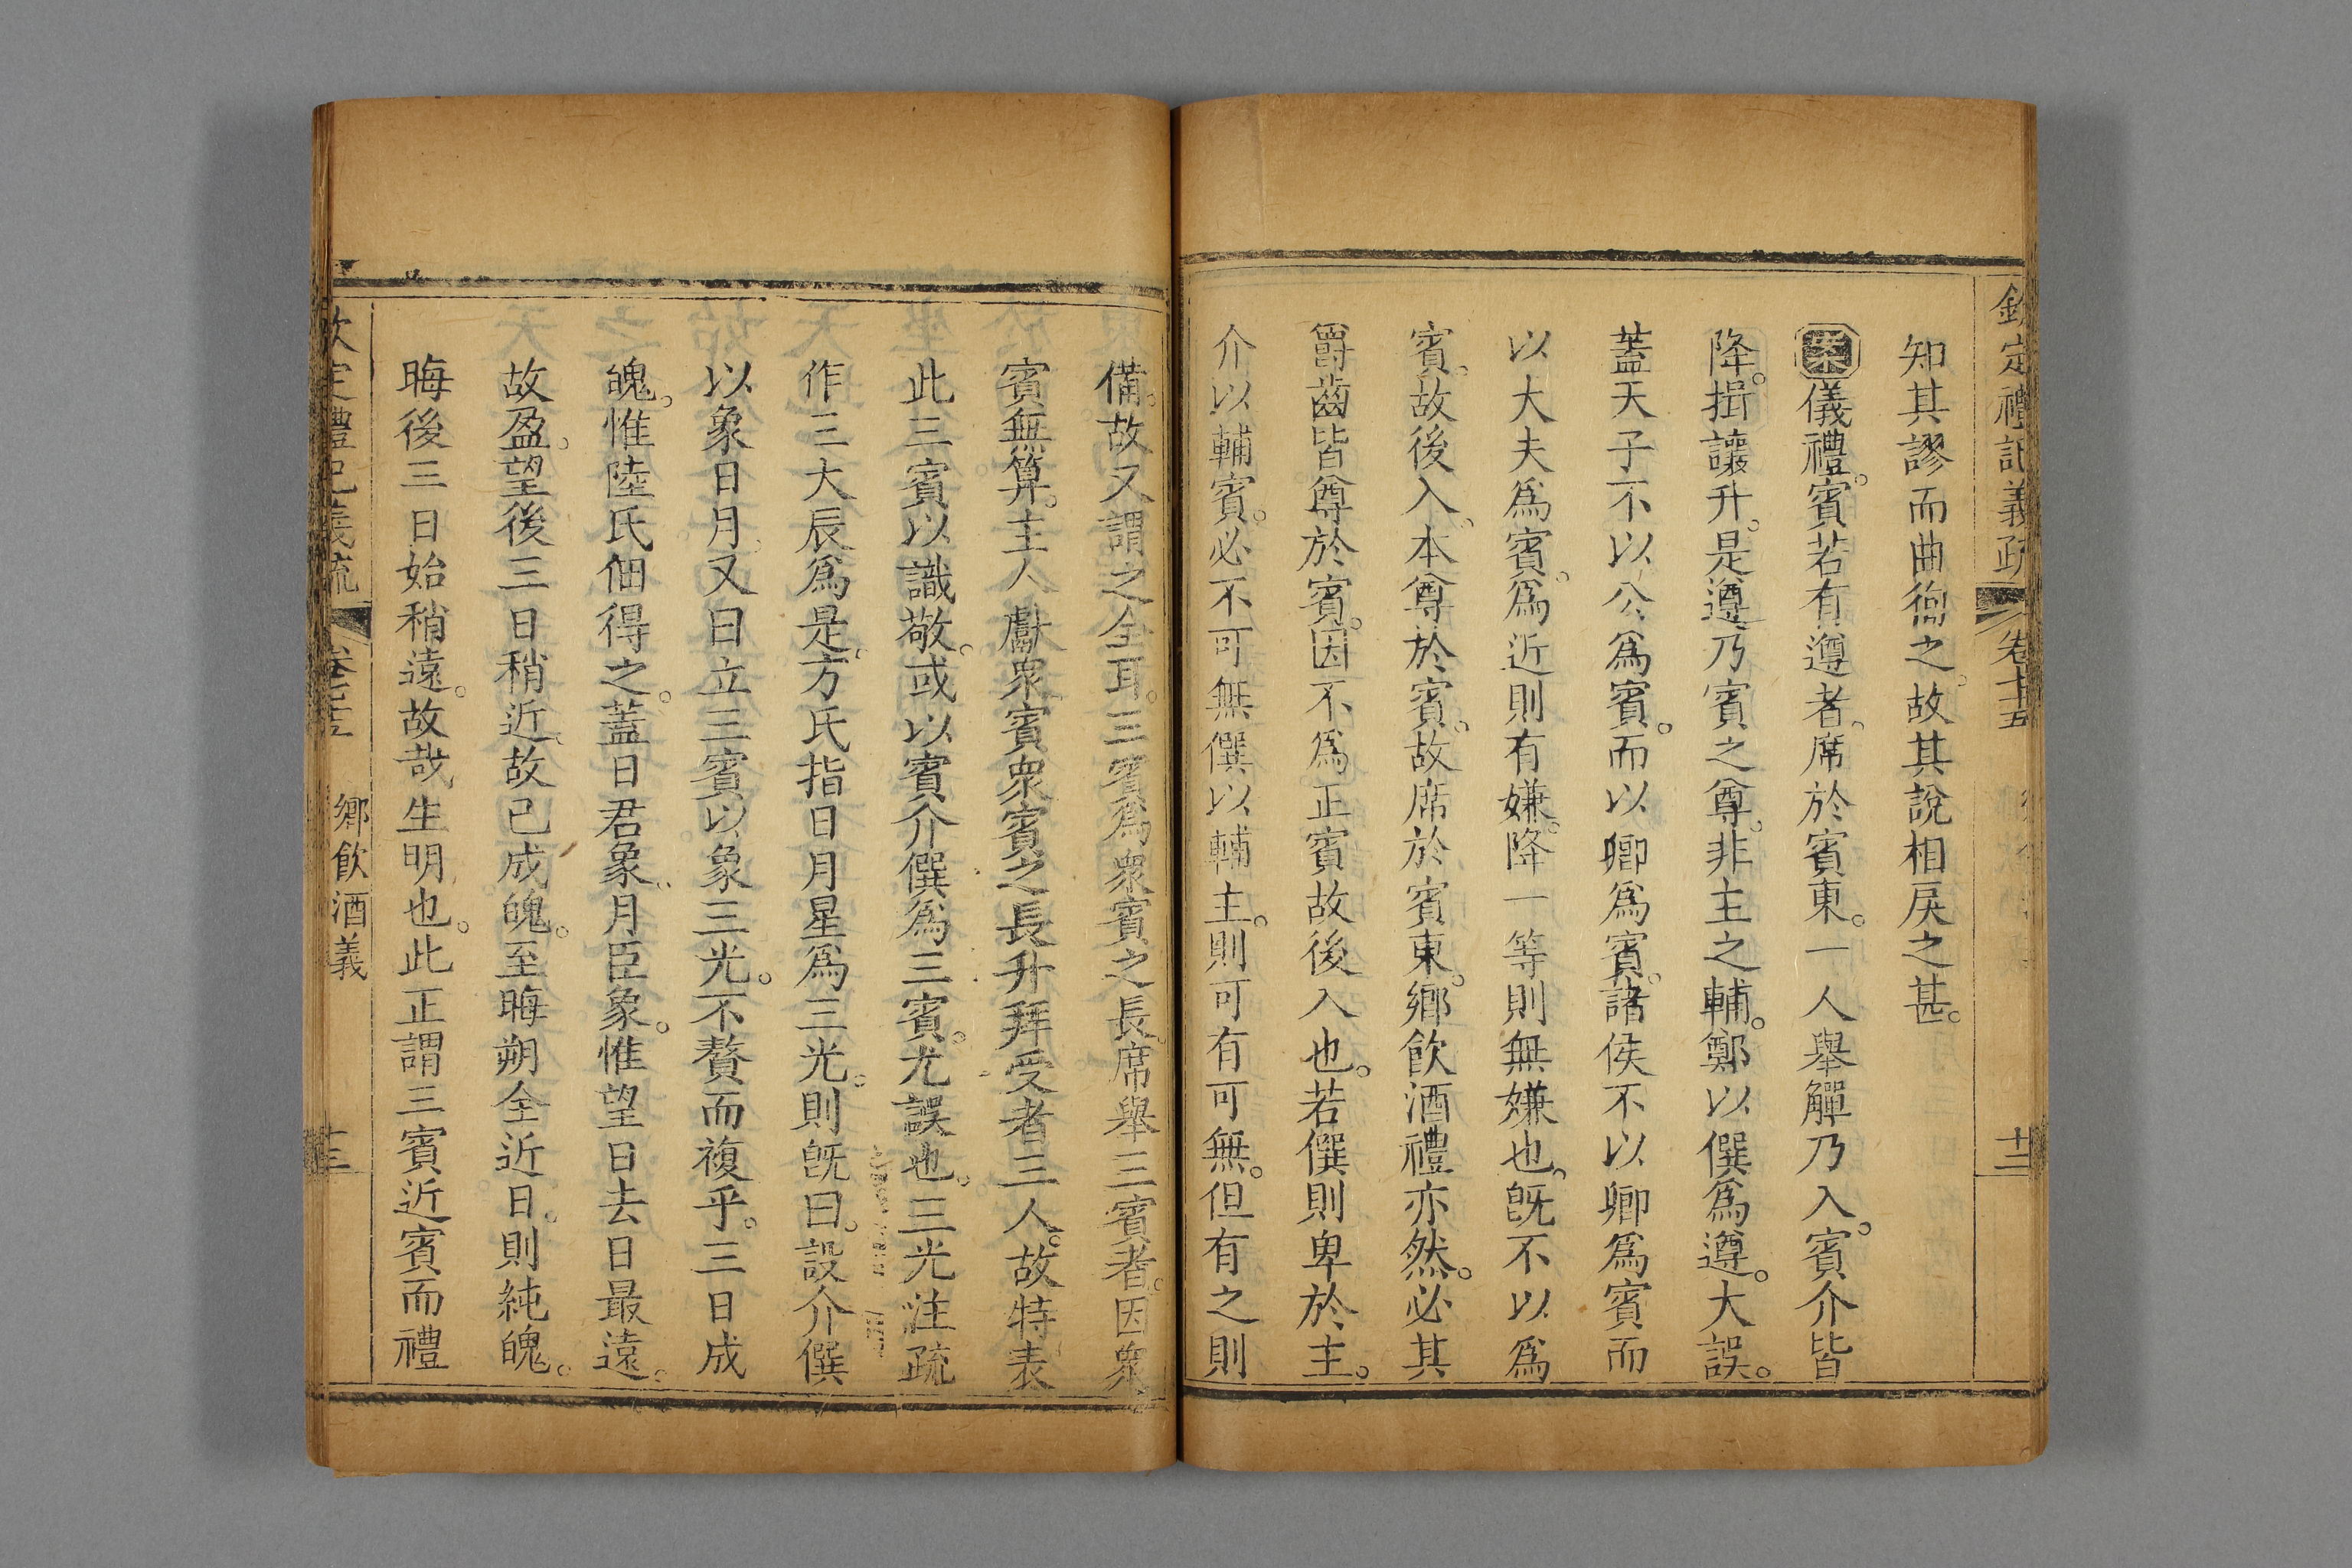 欽定禮記義疏 卷七十五 十二
知其謬而曲徇之故其說相戾之甚。
案儀禮。賓若有遵者。席於賓東。一人舉觶乃入。賓介皆
降。揖讓升。是遵乃賓之尊。非主之輔。鄭以僎爲遵。大誤。
蓋天子不以公爲賓。而以卿爲賓。諸侯不以卿爲賓而
以大夫爲賓。爲近則有嫌。降一等則無嫌也。旣不以爲
賓。故後入。本尊於賓。故席於賓東。鄉飲酒禮亦然。必其
爵齒皆尊於賓。因不爲正賓故後入也。若僎則卑於主。
介以輔賓。必不可無僎以輔主。則可有可無。但有之則
備。故又謂之全耳。三賓爲衆賓之長。席舉三賓者。因衆
賓無算。主人獻衆賓衆賓之長升拜受者三人。故特表
此三賓以識敬。或以賓介僎爲三賓。尤誤也。三光注疏
作三大辰爲是。方氏指日月星爲三光。則旣曰。設介僎
以象日月。又曰立三賓以象三光。不贅而複乎。三日成
魄。惟陸氏佃得之。蓋日君象。月臣象。惟望日去日最遠。
故盈。望後三日稍近。故已成魄。至晦朔全近日。則純魄。
晦後三日始稍遠。故哉生明也。此正謂三賓近賓而禮
欽定禮記義疏 卷七十五 鄉飲酒義 十三